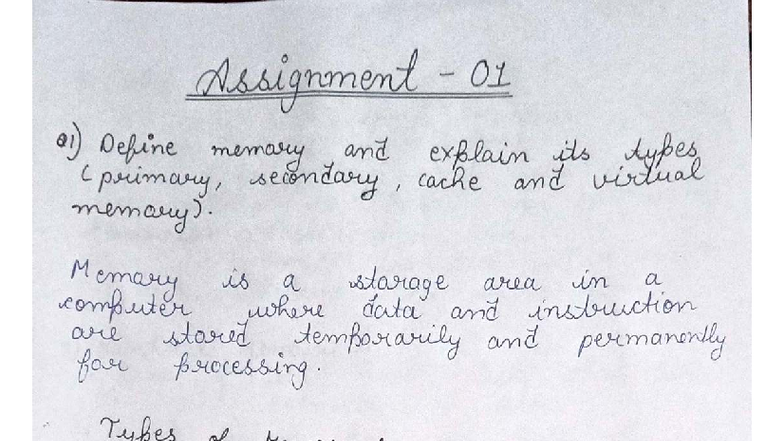 Assignment - 01
Q1) Define memory and explain its types
(primary, secondary, cache and virtual
memory).
Memory is a storage area in a
computer where data and instruction
are stored temporarily and permanently
for processing.
Types of